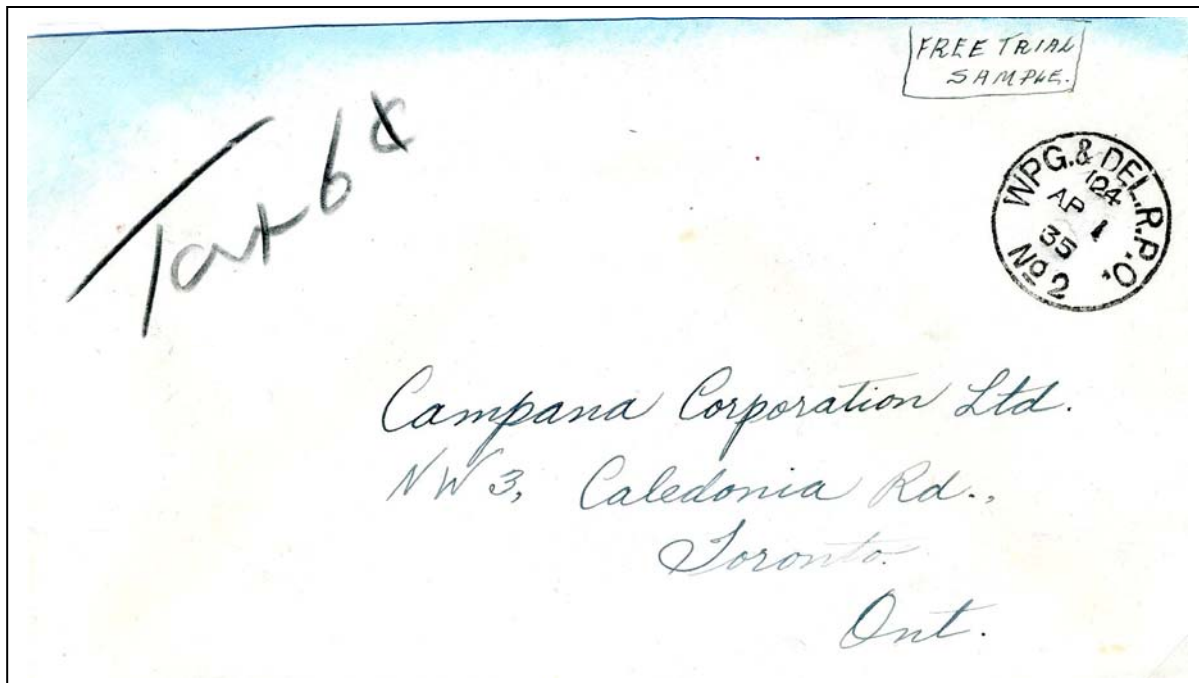 FREE TRIAL
SAMPLE.
Tax 6¢
WPG. & DEL. R.P.O.
124
AP 1
35
No 2
Campana Corporation Ltd.
NW 3, Caledonia Rd.,
Toronto.
Ont.